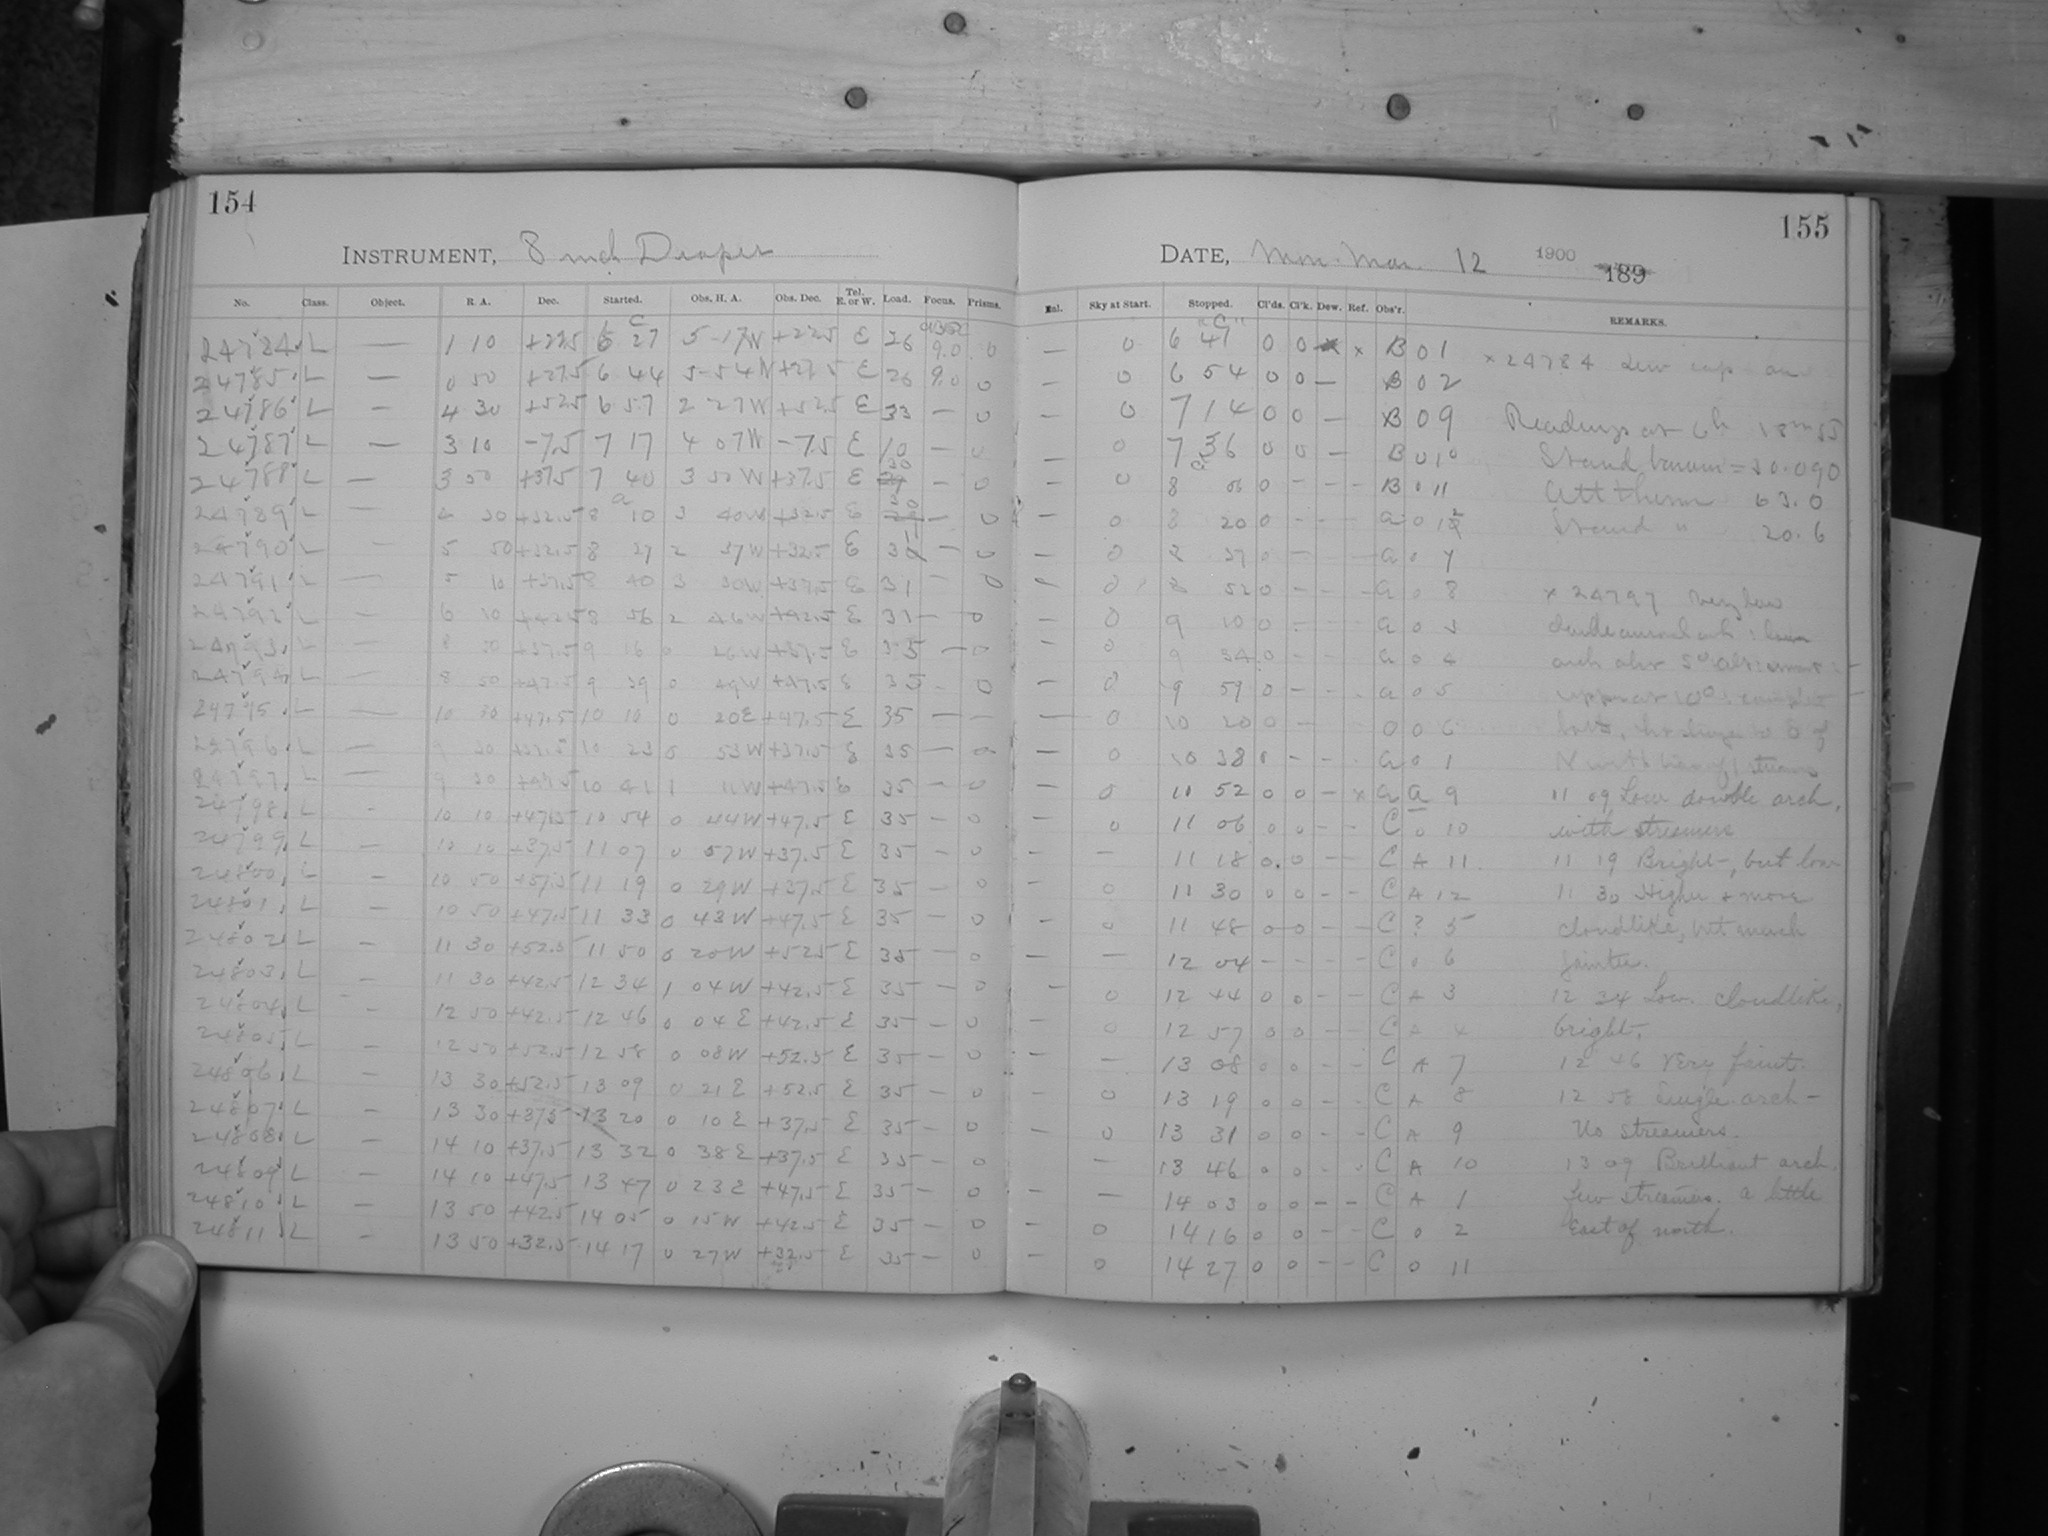 154
INSTRUMENT, 8 inch Draper
No. Class. Object. R. A. Dec. Started. Obs. H. A. Obs. Dec. Tel. E. or W. Load. Focus. Prisms.
24784 L — 1 10 +22.5 6 27 5 17W +22.5 E 26 9.0 0
24785 L — 0 50 +27.5 6 44 5 54W +27.5 E 26 9.0 0
24786 L — 4 30 +52.5 6 57 2 27W +52.5 E 33 — 0
24787 L — 3 10 -7.5 7 17 4 07W -7.5 E 10 — 0
24788 L — 3 50 +37.5 7 40 3 50W +37.5 E 30 — 0
24789 L — 4 30 +32.5 8 10 3 40W +32.5 E 30 — 0
24790 L — 5 50 +32.5 8 27 2 37W +32.5 E 31 — 0
24791 L — 5 10 +37.5 8 40 3 30W +37.5 E 31 — 0
24792 L — 6 10 +42.5 8 56 2 46W +42.5 E 31 — 0
24793 L — 8 50 +37.5 9 16 0 26W +37.5 E 35 — 0
24794 L — 8 50 +47.5 9 39 0 49W +47.5 E 35 — 0
24795 L — 10 30 +47.5 10 10 0 20E +47.5 E 35 — —
24796 L — 9 30 +37.5 10 23 0 53W +37.5 E 35 — 0
24797 L — 9 30 +47.5 10 41 1 11W +47.5 E 35 — 0
24798 L — 10 10 +47.5 10 54 0 44W +47.5 E 35 — 0
24799 L — 10 10 +37.5 11 07 0 57W +37.5 E 35 — 0
24800 L — 10 50 +37.5 11 19 0 29W +37.5 E 35 — 0
24801 L — 10 50 +47.5 11 33 0 43W +47.5 E 35 — 0
24802 L — 11 30 +52.5 11 50 0 20W +52.5 E 35 — 0
24803 L — 11 30 +42.5 12 34 1 04W +42.5 E 35 — 0
24804 L — 12 50 +42.5 12 46 0 04E +42.5 E 35 — 0
24805 L — 12 50 +52.5 12 58 0 08W +52.5 E 35 — 0
24806 L — 13 30 +52.5 13 09 0 21E +52.5 E 35 — 0
24807 L — 13 30 +37.5 13 20 0 10E +37.5 E 35 — 0
24808 L — 14 10 +37.5 13 32 0 38E +37.5 E 35 — 0
24809 L — 14 10 +47.5 13 47 0 23E +47.5 E 35 — 0
24810 L — 13 50 +42.5 14 05 0 15W +42.5 E 35 — 0
24811 L — 13 50 +32.5 14 17 0 27W +32.5 E 35 — 0
155
DATE, Mon. Mar. 12 1900 189
Enl. Sky at Start. Stopped. Cl'ds. Cl'k. Dew. Ref. Obs'r. REMARKS.
— 0 6 41 0 0 x x B 0 1 x 24784 Dew cap on
— 0 6 54 0 0 — B 0 2
— 0 7 14 0 0 — B 0 9 Readings at 6h 18m
— 0 7 36 0 0 — B 0 10 Stand barom = 30.090
— 0 8 06 0 - - - B 0 11 Att therm 63.0
— 0 8 20 0 - - - a 0 12 Stand " 20.6
— 0 8 37 0 - - - a 0 7
— 0 8 52 0 - - - a 0 8 x 24797 Very low
— 0 9 10 0 - - a 0 3 double auroral arch : lower
— 0 9 34 0 - - a 0 4 arch abt 5° alt:
— 0 9 59 0 - - a 0 5 upper at 10°
— 0 10 20 0 - - 0 0 6
— 0 10 38 0 - - a 0 1
— 0 11 52 0 0 — x a a 9 11 09 Low double arch,
0 11 06 0 0 - - C 0 10 with streamers
— 11 18 0 0 - - C A 11 11 19 Bright, but low
0 11 30 0 0 - - C A 12 11 30 Higher + more
— 0 11 48 0 0 - - C ? 5 cloudlike, but much
— — 12 04 - - - - C 0 6 fainter.
— 0 12 44 0 0 - - C A 3 12 34 Low. cloudlike,
— 0 12 57 0 0 - - C A 4 bright.
— — 13 08 0 0 - - C A 7 12 46 Very faint.
— 0 13 19 0 0 - - C A 8 12 58 Single arch —
— 0 13 31 0 0 - - C A 9 No streamers.
— 13 46 0 0 - - C A 10 13 09 Brilliant arch.
— — 14 03 0 0 - - C A 1 few streamers. a little
— 0 14 16 0 0 - - C 0 2 East of north.
— 0 14 27 0 0 - - C 0 11